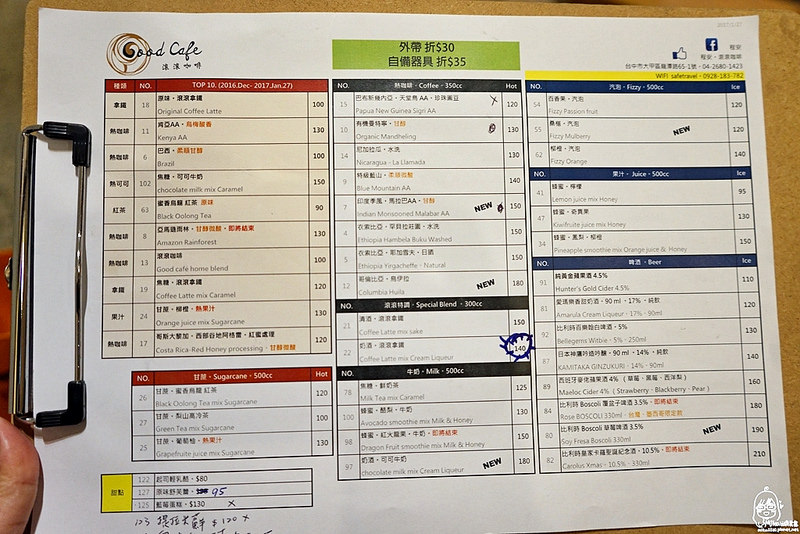 Good Cafe
滾滾咖啡
外帶 折$30
自備器具 折$35
2017/1/27
程安
程安・滾滾咖啡
台中市大甲區龍潭路65-1號・04-2680-1423
WIFI safetravel・0928-183-782
種類 NO. TOP 10. (2016.Dec- 2017.Jan.27)
拿鐵 18 原味・滾滾拿鐵 100
Original Coffee Latte
熱咖啡 11 肯亞AA・烏梅酸香 130
Kenya AA
熱咖啡 6 巴西・柔順甘醇 100
Brazil
熱可可 102 焦糖・可可牛奶 150
chocolate milk mix Caramel
紅茶 63 蜜香烏龍 紅茶 原味 90
Black Oolong Tea
熱咖啡 8 亞馬遜雨林・甘醇微酸・即將結束 130
Amazon Rainforest
熱咖啡 13 滾滾咖啡 100
Good café home blend
拿鐵 19 焦糖・滾滾拿鐵 120
Coffee Latte mix Caramel
果汁 24 甘蔗・柳橙・熱果汁 130
Orange juice mix Sugarcane
熱咖啡 17 哥斯大黎加・西部谷地阿格雷・紅蜜處理 120
Costa Rica-Red Honey processing・甘醇微酸
NO. 甘蔗・Sugarcane・500cc Hot
26 甘蔗・蜜香烏龍 紅茶 120
Black Oolong Tea mix Sugarcane
27 甘蔗・梨山高冷茶 100
Green Tea mix Sugarcane
25 甘蔗・葡萄柚・熱果汁 130
Grapefruite juice mix Sugarcane
甜點
122 起司輕乳酪・$80
127 原味舒芙蕾・ 95
125 藍莓蛋糕・$130 X
123 提拉米蘇 $120 X
NO. 熱咖啡・Coffee・350cc Hot
15 巴布新幾內亞・天堂鳥 AA・珍珠圓豆 X 120
Papua New Guinea Signi AA
10 有機曼特寧・甘醇 130
Organic Mandheling
14 尼加拉瓜・水洗 130
Nicaragua - La Llamada
9 特級藍山・柔順微酸 140
Blue Mountain AA
7 印度季風・馬拉巴AA・甘醇 NEW 150
Indian Monsooned Malabar AA
4 衣索比亞・罕貝拉莊園・水洗 150
Ethiopia Hambela Buku Washed
5 衣索比亞・耶加雪夫・日曬 150
Ethiopia Yirgacheffe・Natural
12 哥倫比亞・烏伊拉 NEW 180
Columbia Huila
NO. 滾滾特調・Special Blend・300cc
21 清酒・滾滾拿鐵 150
Coffee Latte mix sake
22 奶酒・滾滾拿鐵 140
Coffee Latte mix Cream Liqueur
NO. 牛奶・Milk・500cc Hot
78 焦糖・鮮奶茶 125
Milk Tea mix Caramel
100 蜂蜜・酪梨・牛奶 130
Avocado smoothie mix Milk & Honey
98 蜂蜜・紅火龍果・牛奶・即將結束 150
Dragon Fruit smoothie mix Milk & Honey
97 奶酒・可可牛奶 NEW 180
chocolate milk mix Cream Liqueur
NO. 汽泡・Fizzy・500cc Ice
54 百香果・汽泡 120
Fizzy Passion fruit
55 桑椹・汽泡 NEW 120
Fizzy Mulberry
62 柳橙・汽泡 140
Fizzy Orange
NO. 果汁・Juice・500cc Ice
41 蜂蜜・檸檬 95
Lemon juice mix Honey
47 蜂蜜・奇異果 130
Kiwifruite juice mix Honey
34 蜂蜜・鳳梨・柳橙 150
Pineapple smoothie mix Orange juice & Honey
NO. 啤酒・Beer Ice
91 純黃金蘋果酒 4.5% 110
Hunter's Gold Cider 4.5%
81 愛瑪樂香甜奶酒・90 ml・17%・純飲 120
Amarula Cream Liqueur・17%・90ml
92 比利時百樂翰白啤酒・5% 130
Bellegems Witbie・5%・250ml
87 日本神鷹吟造吟釀・90 ml・14%・純飲 140
KAMITAKA GINZUKURI・14%・90ml
89 西班牙麥佬蘋果酒 4% （草莓・黑莓・西洋梨） 160
Maeloc Cider 4%（Strawberry・Blackberry・Pear）
84 比利時 Boscoli 覆盆子啤酒 3.5%・即將結束 180
Rose BOSCOLI 330ml・台灣・墨西哥限定款
80 比利時 Boscoli 草莓啤酒 3.5% NEW 190
Soy Fresa Boscoli 330ml
82 比利時皇家卡羅聖誕紀念酒・10.5%・即將結束 210
Carolus Xmas・10.5%・330ml